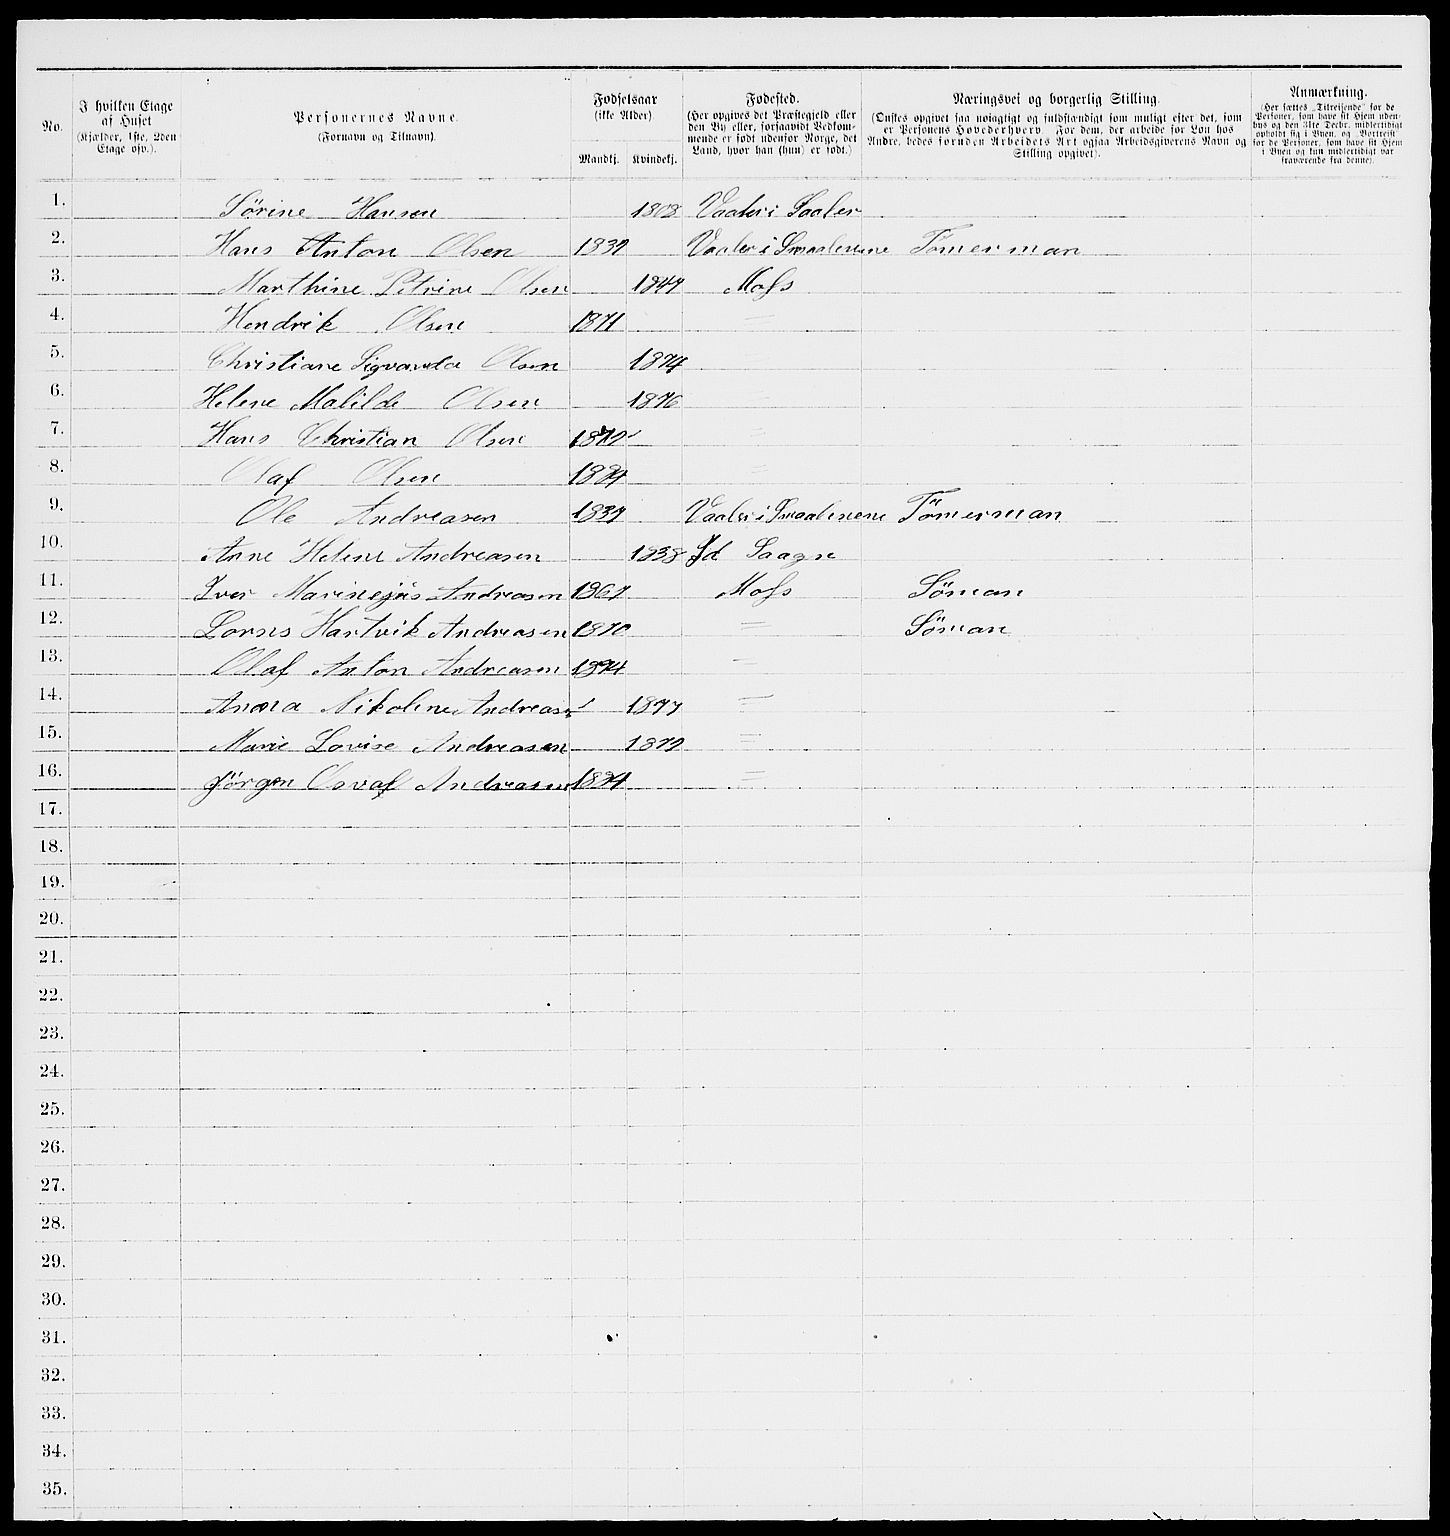 No.
I hvilken Etage af Huset (Kjælder, 1ste, 2den Etage osv.).
Personernes Navne. (Fornavn og Tilnavn).
Fødselsaar (ikke Alder) Mandkj. Kvindekj.
Fødested. (Her opgives det Præstegjeld eller den By eller, forsaavidt Vedkommende er født udenfor Norge, det Land, hvor han (hun) er født.)
Næringsvei og borgerlig Stilling. (Ønskes opgivet saa nøiagtigt og fuldstændigt som muligt efter det, som er Personens Hovederhverv. For dem, der arbeide for Løn hos Andre, bedes foruden Arbeidets Art ogsaa Arbeidsgiverens Navn og Stilling opgivet).
Anmærkning. (Her sættes „Tilreisende" for de Personer, som have sit Hjem udenhus og den 31te Decbr. midlertidigt opholdt sig i Byen, og „Bortreist" for de Personer, som have sit Hjem i Byen og kun midlertidigt var fraværende fra denne).
1. Sörine Hansen 1808 Vaaler i
2. Hans Anton Olsen 1839 Vaaler i Smaalenene Tömerman
3. Marthine Petrine Olsen 1849 Moss
4. Hendrik Olsen 1871 "
5. Christiane Sigvarda Olsen 1874
6. Helene Matilde Olsen 1876
7. Hans Christian Olsen 1879 "
8. Olaf Olsen 1884 "
9. Ole Andreasen 1839 Vaaler i Smaalenene Tömerman
10. Anne Helene Andreasen 1838 Id
11. Iver Andreasen 1867 Moss Söman
12. Hartvik Andreasen 1870 " Söman
13. Olaf Anton Andreasen 1874 "
14. Anna Nikoline Andreasen 1877 "
15. Marie Lovise Andreasen 1879 "
16. Jörgen Andreasen 1884 "
17.
18.
19.
20.
21.
22.
23.
24.
25.
26.
27.
28.
29.
30.
31.
32.
33.
34.
35.